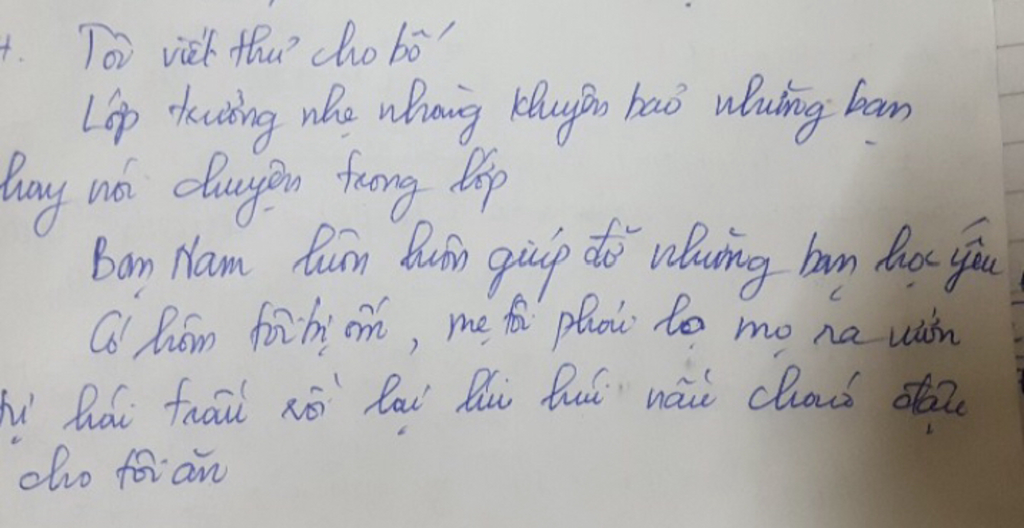 4. Tôi viết thư cho bố
Lớp trưởng nhẹ nhàng khuyên bảo những bạn
hay nói chuyện trong lớp
Bạn Nam luôn luôn giúp đỡ những bạn học yếu
Có hôm tôi bị ốm, mẹ tôi phải lọ mọ ra vườn
hái trầu rồi lại lúi húi nấu cháo đậu
cho tôi ăn